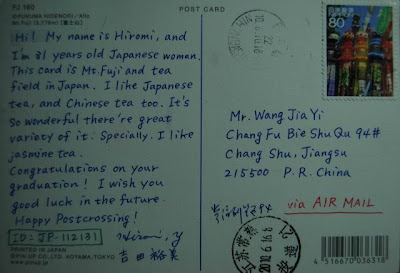 FJ 160
©FUKUMA HIDENORI / Aflo
Mt. Fuji (3,776m) [富士山]
POST CARD
Hi! My name is Hiromi, and
I'm 31 years old Japanese woman.
This card is Mt.Fuji and tea
field in Japan. I like Japanese
tea, and Chinese tea too. It's
so wonderful there're great
variety of it. Specially, I like
jasmine tea.
Congratulations on your
graduation! I wish you
good luck in the future.
Happy Postcrossing!
ID: JP-112131
Hiromi, Y
吉田裕美
PRINTED IN JAPAN
©PIN UP CO.,LTD. AOYAMA, TOKYO
80
Mr. Wang Jia Yi
Chang Fu Bie Shu Qu 94#
Chang Shu, Jiangsu
215500 P.R. China
via AIR MAIL
4 516670 036318